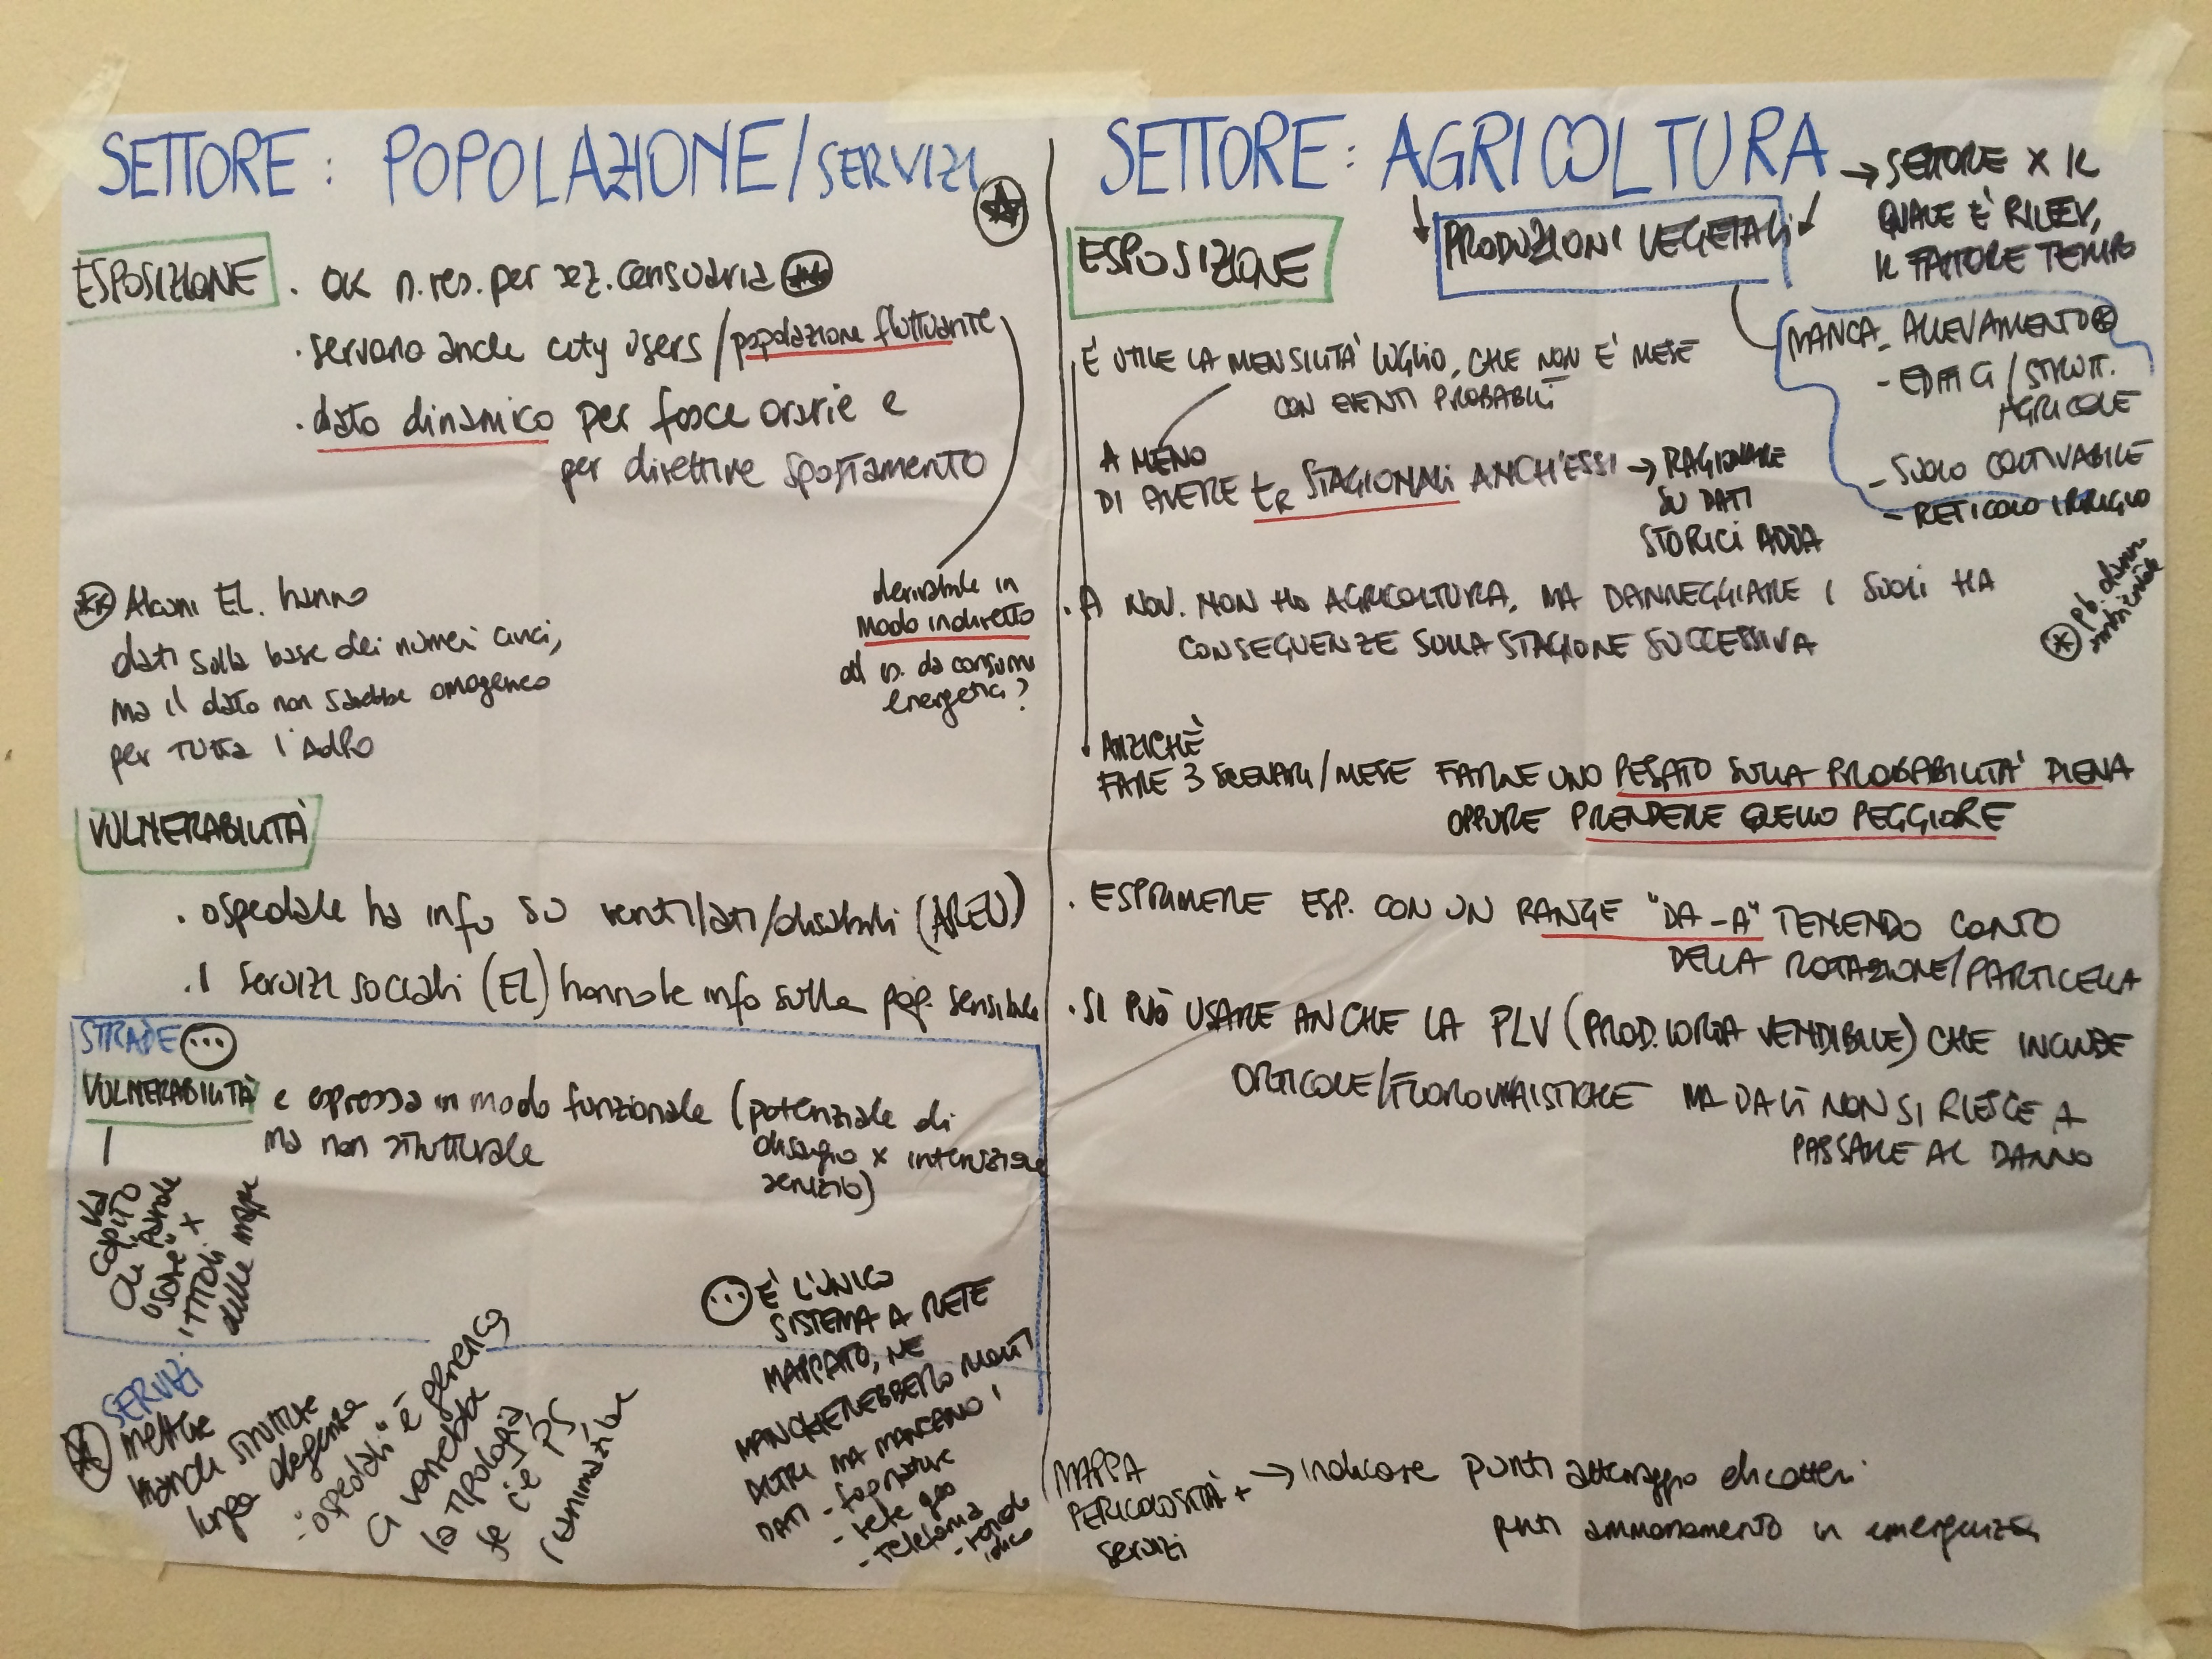 SETTORE: POPOLAZIONE/SERVIZI
ESPOSIZIONE
. OK n. res. per sez. censuaria **
. servono anche city users / popolazione fluttuante
. dato dinamico per fasce orarie e
per direttive spostamento
derivabile in
modo indiretto
ad es. da consumi
energetici?
** Alcuni EL. hanno
dati sulla base dei numeri civici,
ma il dato non sarebbe omogeneo
per TUTTA l'AdPo
VULNERABILITÀ
. ospedale ha info su ventilati/disabili (AREU)
. I servizi sociali (EL) hanno le info sulla pop. sensibile
STRADE ...
VULNERABILITÀ è espressa in modo funzionale (potenziale di
ma non strutturale
disagio x interruzione
servizio)
Va
capito
che parole
"usare" x
i TITOLI
delle mappe
... È L'UNICO
SISTEMA A RETE
MAPPATO, NE
MANCHEREBBERO MOLTI
ALTRI MA MANCANO I
DATI - fognature
- rete gas
- telefonia
SERVIZI
mettere
anche strutture
lunga degenza
- "ospedali" è generico
ci vorrebbe
la tipologia
se c'è PS
rianimazione
SETTORE: AGRICOLTURA
→ SETTORE X IL
QUALE È RILEV.
IL FATTORE TEMPO
PRODUZIONI VEGETALI
ESPOSIZIONE
MANCA - ALLEVAMENTO *
- EDIFICI/STRUTT.
AGRICOLE
- SUOLO COLTIVABILE
- RETICOLO IRRIGUO
* pb. danno
ambientale
È UTILE LA MENSILITÀ LUGLIO, CHE NON È MESE
CON EVENTI PROBABILI
A MENO
DI AVERE tR STAGIONALI ANCH'ESSI → RAGIONARE
SU DATI
STORICI ADDA
. A NOV. NON HO AGRICOLTURA, MA DANNEGGIARE I SUOLI HA
CONSEGUENZE SULLA STAGIONE SUCCESSIVA
ANZICHÈ
FARE 3 SCENARI/MESE FARNE UNO PESATO SULLA PROBABILITÀ PIENA
OPPURE PRENDERE QUELLO PEGGIORE
. ESPRIMERE ESP. CON UN RANGE "DA-A" TENENDO CONTO
DELLA ROTAZIONE/PARTICELLA
. SI PUÒ USARE ANCHE LA PLV (PROD. LORDA VENDIBILE) CHE INCLUDE
ORTICOLE/FLOROVIVAISTICHE MA DA LÌ NON SI RIESCE A
PASSARE AL DANNO
MAPPA
PERICOLOSITÀ +
servizi
→ indicare punti atterraggio elicotteri
punti ammassamento in emergenza